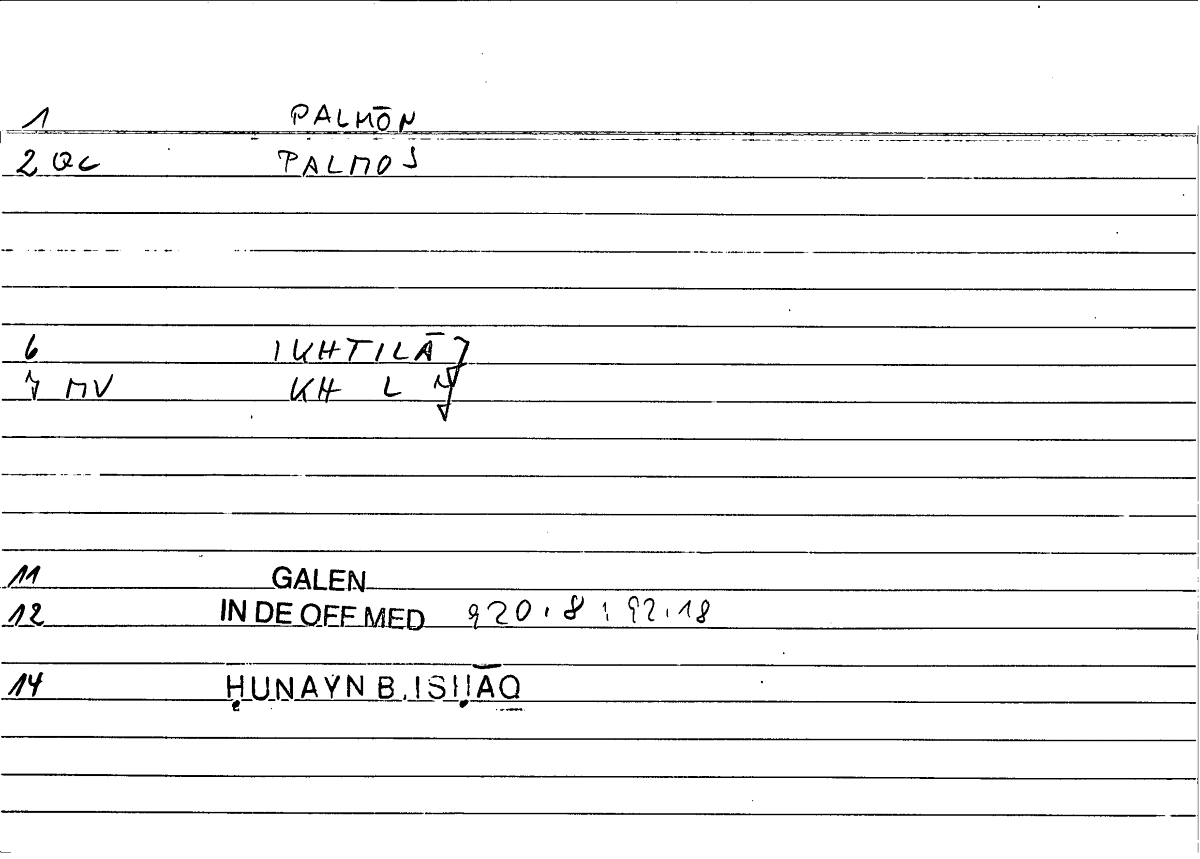 1 PALMŌN
2 QC PALMOS
6 IKHTILĀJ
7 MV KH L J
11 GALEN
12 IN DE OFF MED 920.8; 92.18
14 ḤUNAYN B. ISḤĀQ